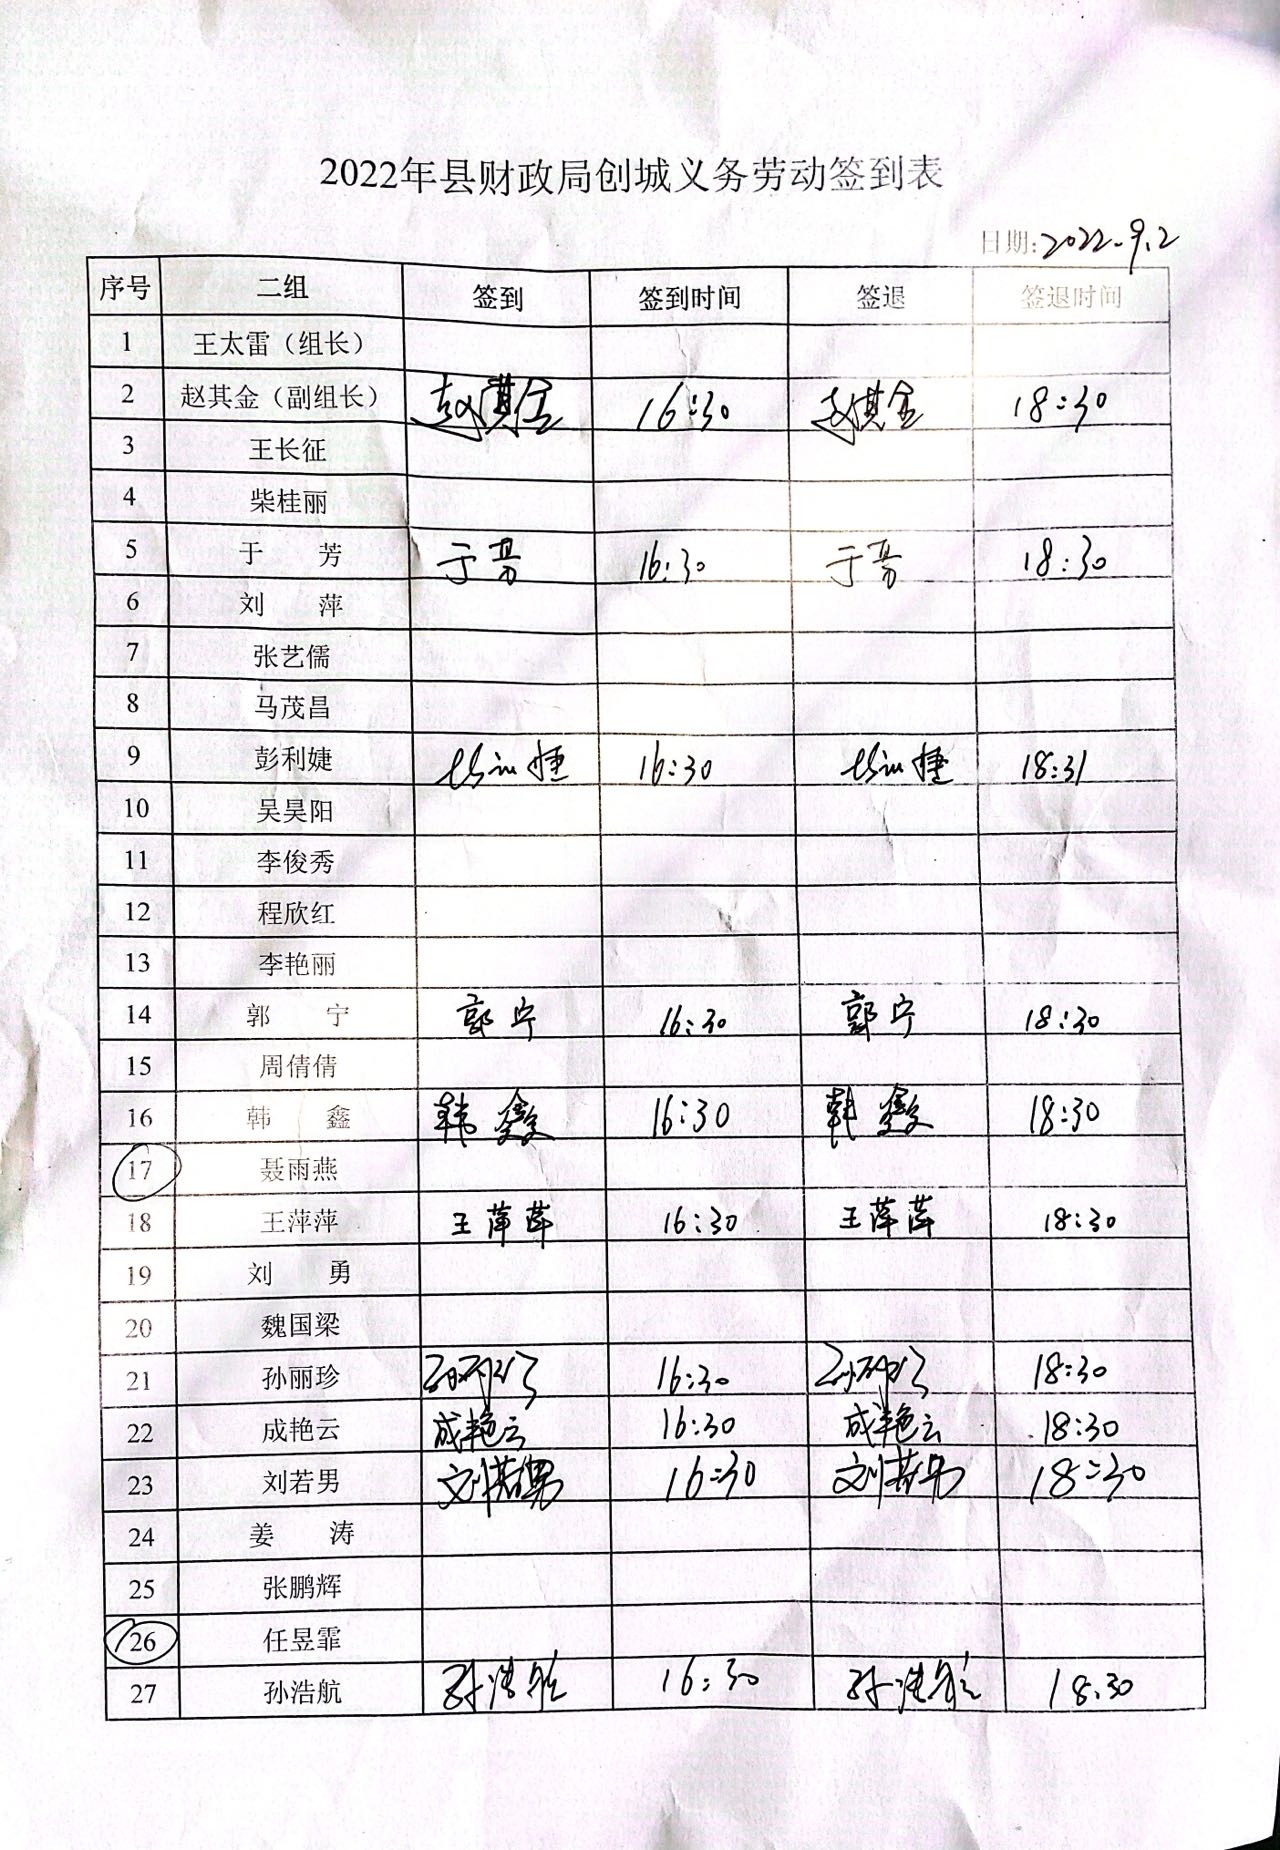 2022年县财政局创城义务劳动签到表
日期:2022.9.2
序号 二组 签到 签到时间 签退 签退时间
1 王太雷（组长）
2 赵其金（副组长） 赵其金 16:30 赵其金 18:30
3 王长征
4 柴桂丽
5 于 芳 于芳 16:30 于芳 18:30
6 刘 萍
7 张艺儒
8 马茂昌
9 彭利婕 16:30 18:31
10 吴昊阳
11 李俊秀
12 程欣红
13 李艳丽
14 郭 宁 郭宁 16:30 郭宁 18:30
15 周倩倩
16 韩 鑫 韩鑫 16:30 韩鑫 18:30
17 聂雨燕
18 王萍萍 王萍萍 16:30 王萍萍 18:30
19 刘 勇
20 魏国梁
21 孙丽珍 孙丽珍 16:30 孙丽珍 18:30
22 成艳云 成艳云 16:30 成艳云 18:30
23 刘若男 刘若男 16:30 刘若男 18:30
24 姜 涛
25 张鹏辉
26 任昱霏
27 孙浩航 孙浩航 16:30 孙浩航 18:30